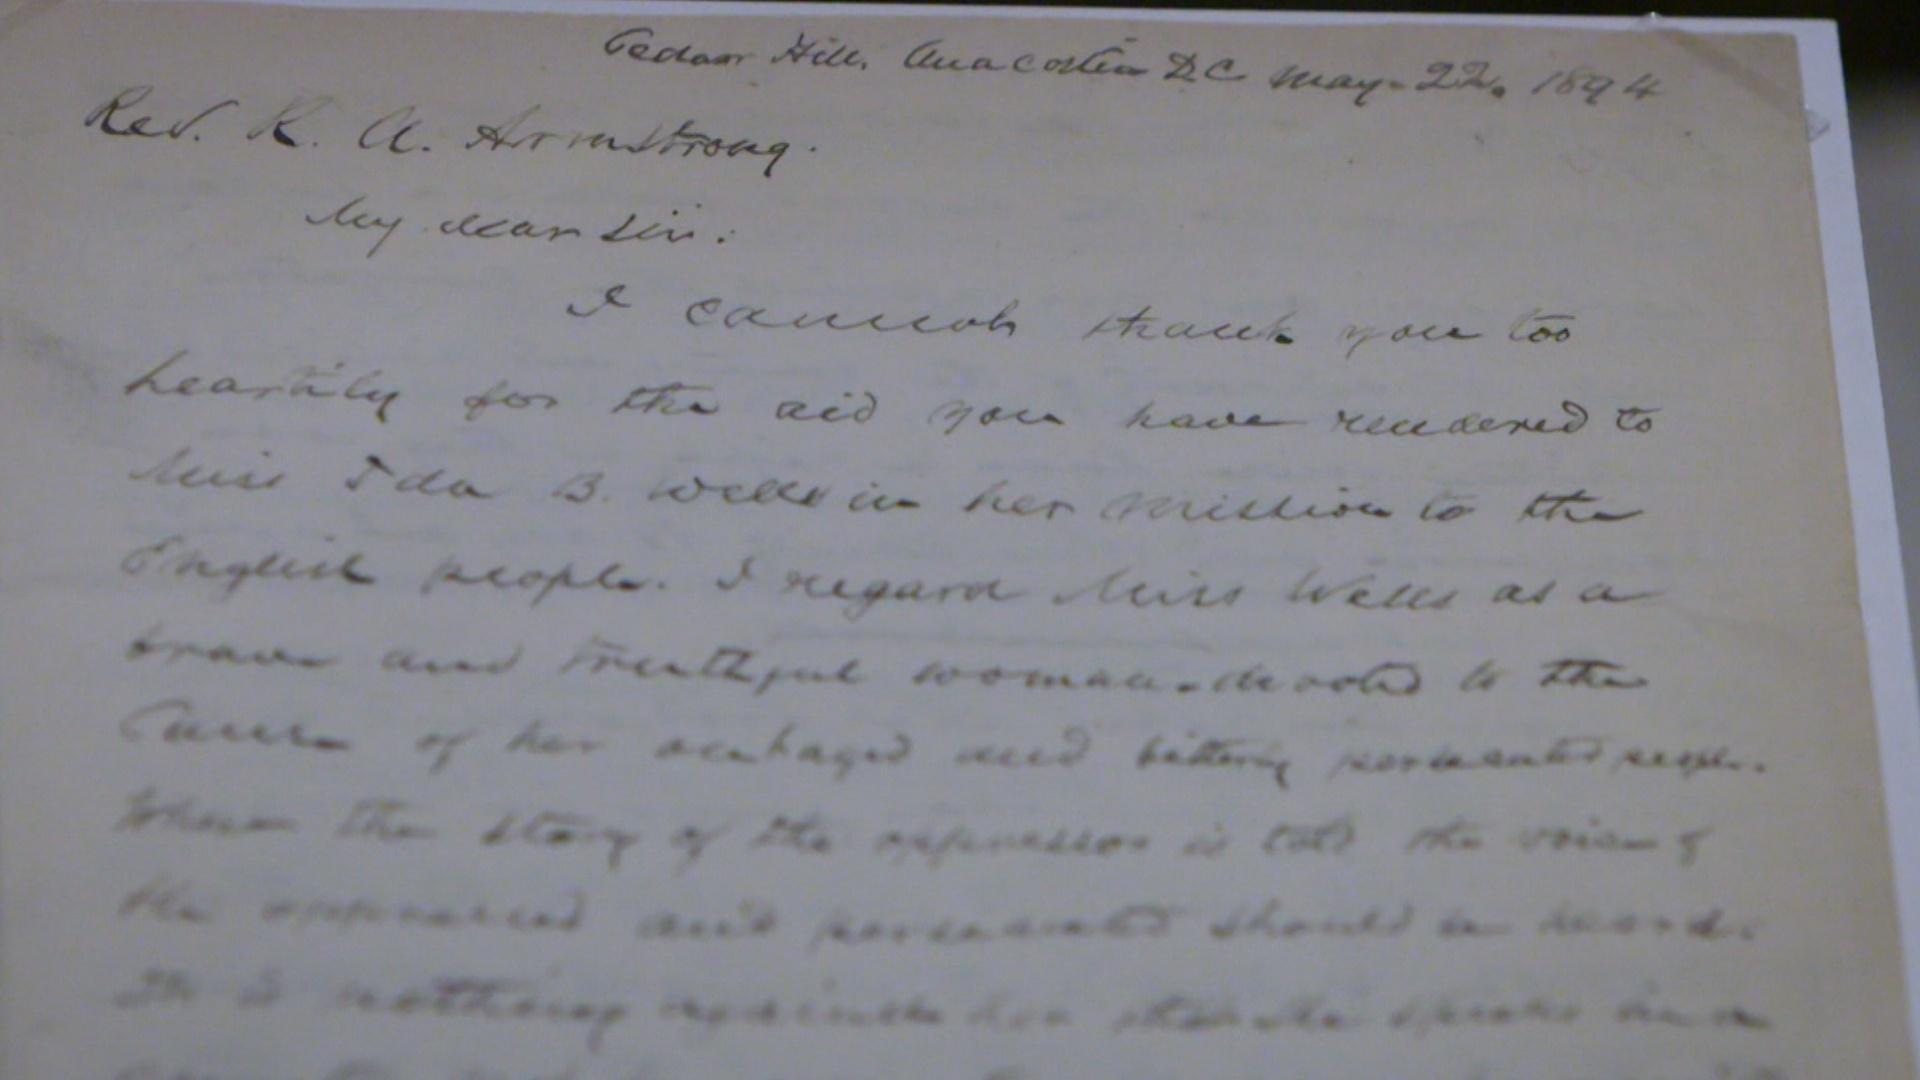 Cedar Hill. Anacostia D.C. May. 22. 1894
Rev. R. A. Armstrong.
My dear Sir:
I cannot thank you too
heartily for the aid you have rendered to
Miss Ida B. Wells in her mission to the
English people. I regard Miss Wells as a
brave and truthful woman. devoted to the
Cause of her outraged and bitterly persecuted people.
Where the story of the oppressor is told the voice of
the oppressed and persecuted should be heard.
It is nothing against her that she speaks in a